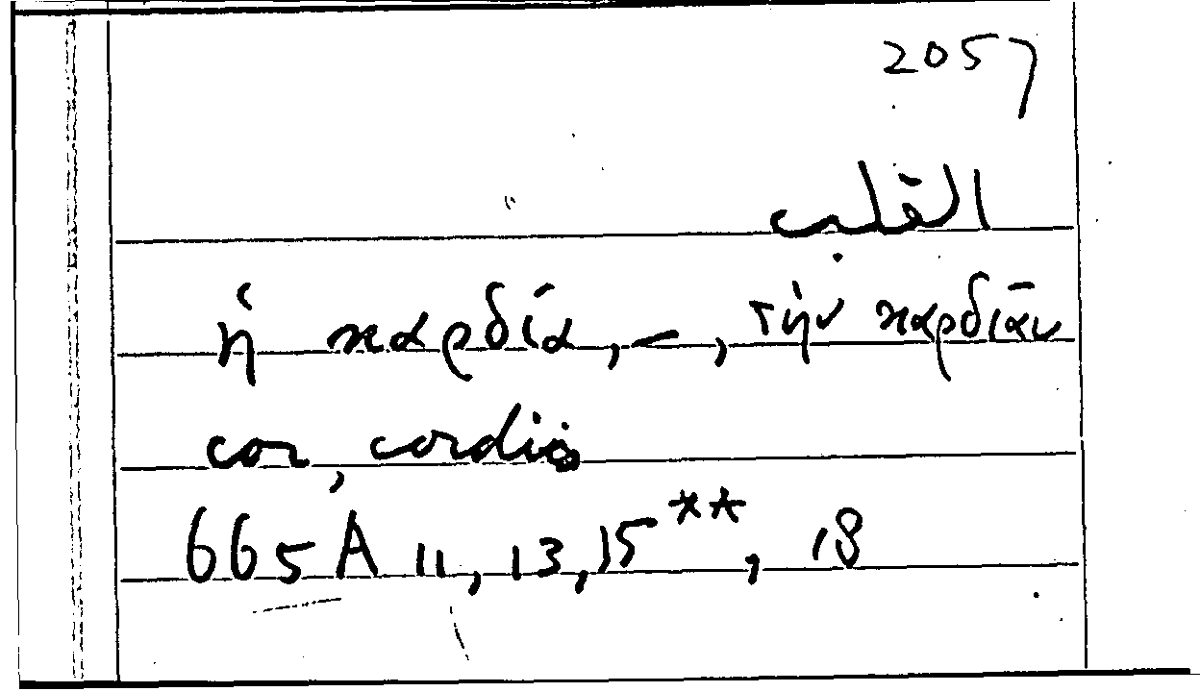 2057
القلب
ἡ καρδία, –, τὴν καρδίαν
cor, cordis
665A 11, 13, 15**, 18